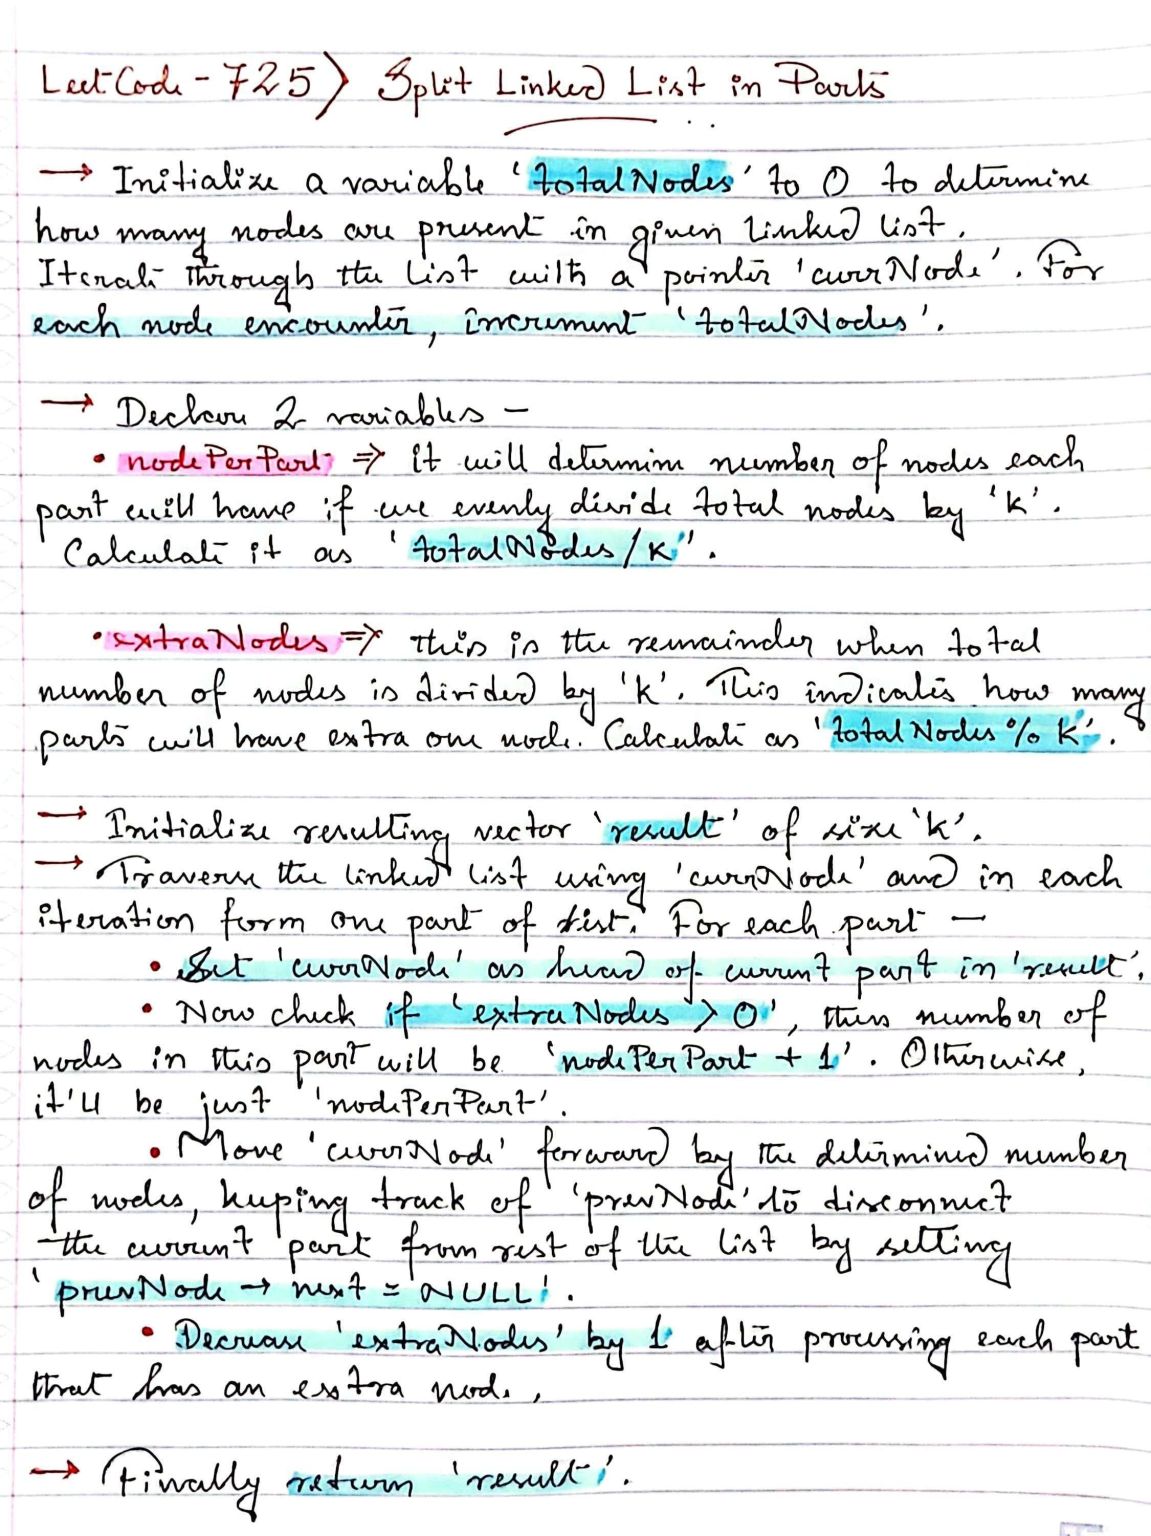 LeetCode - 725) Split Linked List in Parts
→ Initialize a variable 'totalNodes' to 0 to determine
how many nodes are present in given linked list.
Iterate through the list with a pointer 'currNode'. For
each node encounter, increment 'totalNodes'.
→ Declare 2 variables -
• nodePerPart ⇒ it will determine number of nodes each
part will have if we evenly divide total nodes by 'k'.
Calculate it as 'totalNodes/k'.
• extraNodes ⇒ this is the remainder when total
number of nodes is divided by 'k'. This indicates how many
parts will have extra one node. Calculate as 'totalNodes % k'.
→ Initialize resulting vector 'result' of size 'k'.
→ Traverse the linked list using 'currNode' and in each
iteration form one part of list. For each part -
• Set 'currNode' as head of current part in 'result'.
• Now check if 'extraNodes > 0', then number of
nodes in this part will be 'nodePerPart + 1'. Otherwise,
it'll be just 'nodePerPart'.
• Move 'currNode' forward by the determined number
of nodes, keeping track of 'prevNode' to disconnect
the current part from rest of the list by setting
'prevNode → next = NULL'.
• Decrease 'extraNodes' by 1 after processing each part
that has an extra node.
→ Finally return 'result'.